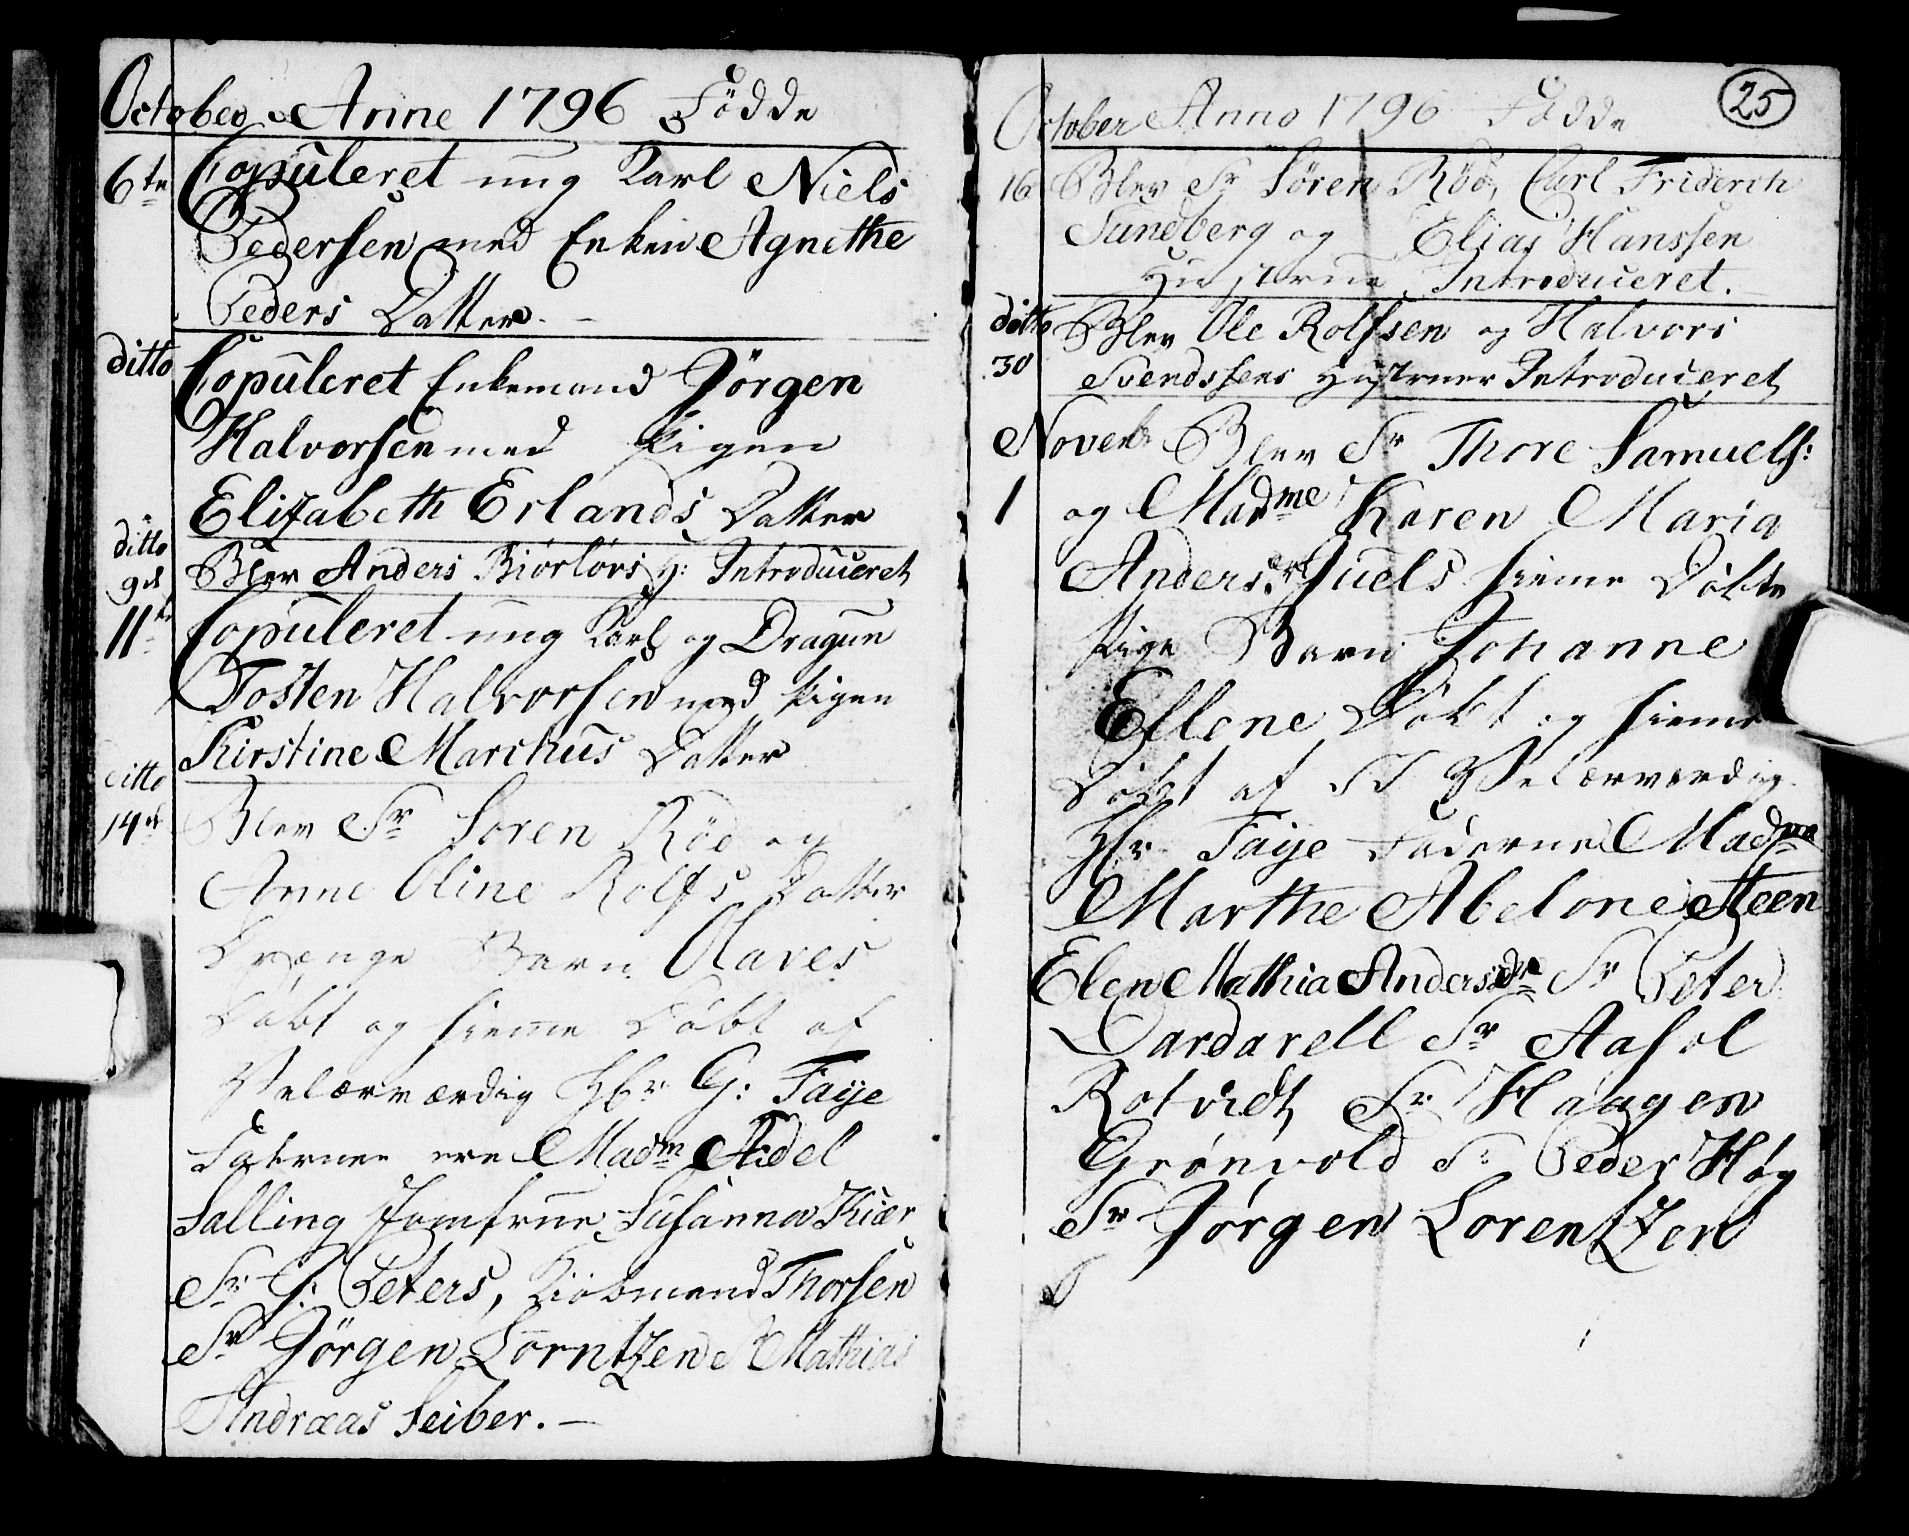 October Anne 1796 Födde
6te Copuleret ung Karl Niels
Pedersen med Enken Agnethe
Peders Datter. –
ditto Copuleret Enkemand Jörgen
Halvorsen med Pigen
Elizabeth Erlands Datter
ditto
9d Blev Anders Biørløvs H: Introduceret
11te Copuleret ung Karl og Dragun
Tosten Halvorsen med Pigen
Kirstine Marchus Datter
ditto
14d Blev Sr Søren Röd og
Anne Oline Rolfs Datter
Drænge Barn Olaves
Döbt og hieme Döbt af
Velærværdig Hr G: Faije
Faderne ere Madm Aidel
Salling Jomfrue Susanna Kiær
Sr G: Peters, Kiöbmand Thorsen
Sr Jörgen Lorntzen Sr Mathias
Andræas Seiber. –
25
October Anno 1796 Födde
16 Blev Sr Søren Röd, Carl Friderch
Sundberg og Elias Hanssen
Hustrue Introduceret.
ditto Blev Ole Rolfsen og Halvors
30 Svendsens Hustruer Introduceret
Novemb Blev Sr Thore Samuels:
1 og Madme Karen Maria
Anders: Juels hieme Döbte
Pige Barn Johanne
Ellene Döbt og hieme
Döbt af Velærværdig
Hr Faije Faderne Madme
Marthe Abelone Steen
Elen Mathia Andersdr Sr Peter
Dardarell Sr Aasol
Rotvidt Sr Haagen
Grönvold Sr Peder Høg
Sr Jörgen Lorentzen